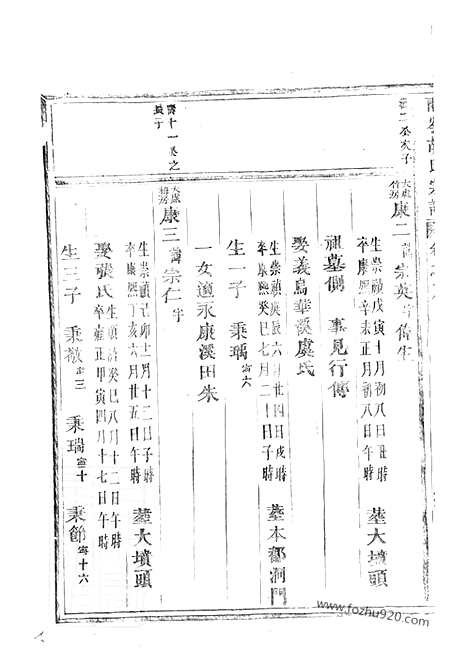 大處竹房 康二 諱宗英 字偉生
生崇禎戊寅十月初八日丑時
卒康熙辛未正月初八日午時 墓大墳頭
祖墓側 事見行傳
娶義烏華溪虞氏
生崇禎庚辰六月廿四日戌時
卒康熙癸巳七月二十日子時 墓本鄉洞門
生一子 秉瑀 富六
一女適永康溪田朱
長子
康三 諱宗仁 字
生崇禎己卯十二月十二日子時
卒康熙丁亥六月廿五日午時 墓大墳頭
娶張氏
生順治癸巳八月十二日午時
卒雍正甲寅四月十七日午時
生三子 秉徽 富三 秉瑞 富十 秉節 富十六
www.fozhu920.com